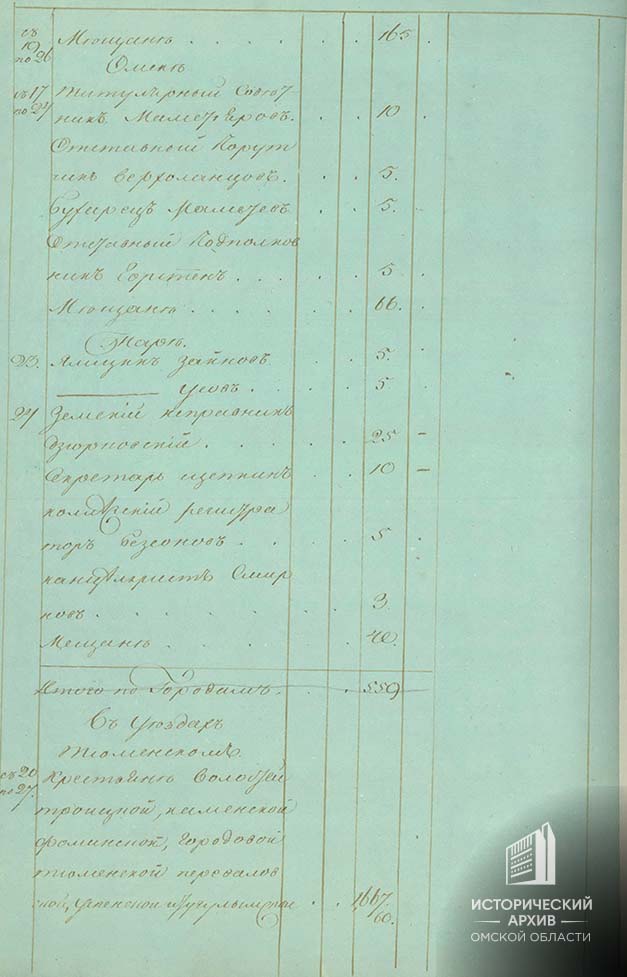 съ 19 по 26 Мющань . . . . 165 .
Омскъ
съ 17 по 27 Титулярный Совют
никъ Маметъ Еровъ . . . 10 .
Отставный Порут
чикъ Верхоланцовъ . . . 5 .
Бухарецъ Маметевъ . . 5 .
Отставный Подполков
никъ . . . . 5 .
Мющаню . . . . . 66 .
Тарю.
23. Ямщикъ Зайновъ . . 5.
——— Усовъ . . . 5
27 Земскій исправникъ
Дзюрковскій . . . . 25 –
Секретарь Щепкинъ . . 10 –
коллежскій регистра
торъ Безсоновъ . . . . 5 .
канцеляристъ Смир
новъ . . . . . . 3
Мещаню . . . . 40 .
Итого по Городамъ . . . 559
Въ Уюздах
Тюменскомъ.
съ 20 по 27. Крестьяню Волостей
троицкой, каменской
фоминской, Городовой
тюменской переваловс
кой, успенской и . . 1,667.
60.
ИСТОРИЧЕСКИЙ
АРХИВ
ОМСКОЙ ОБЛАСТИ